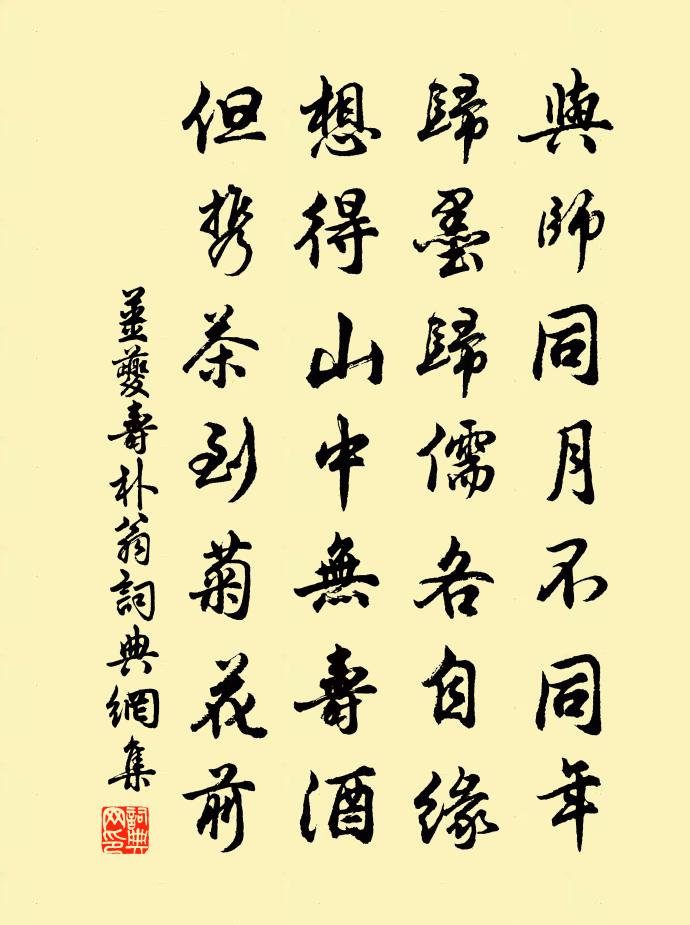 與師同月不同年
歸墨歸儒各自緣
想得山中無壽酒
但携茶到菊花前
姜夔壽朴翁詞典網集
詞典網印